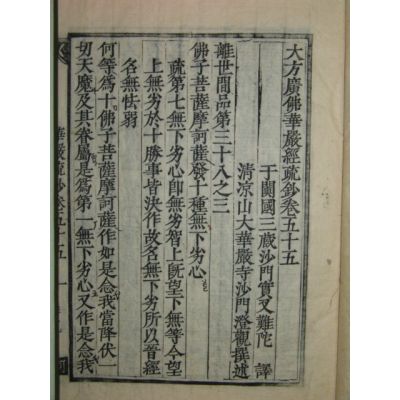 大方廣佛華嚴經疏鈔卷五十五
于闐國三藏沙門實叉難陀　譯
清凉山大華嚴寺沙門澄觀撰述
離世間品第三十八之三
佛子菩薩摩訶薩發十種無下劣心
疏第七無下劣心卽無劣智上旣望下無等今望
上無劣於十勝事皆決作故名無下劣所以晉經
名無怯弱
何等爲十佛子菩薩摩訶薩作如是念我當降伏一
切天魔及其眷屬是爲第一無下劣心又作是念我
華嚴疏鈔卷五十五　一